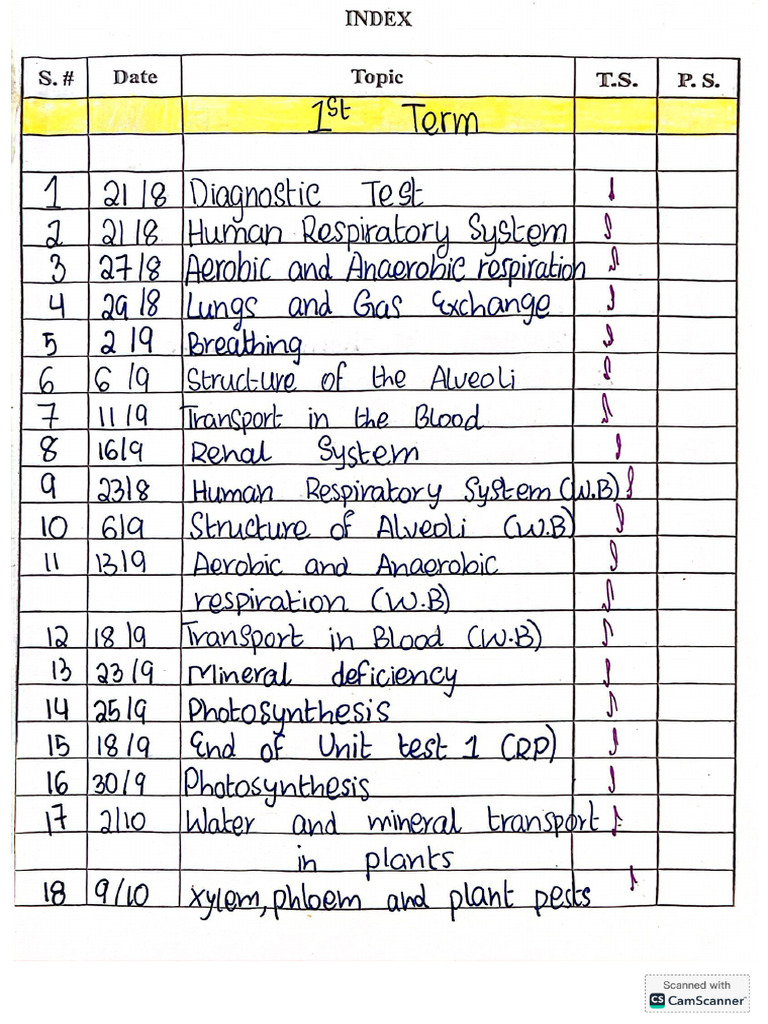 INDEX
S. # Date Topic T.S. P. S.
1st Term
1 21/8 Diagnostic Test
2 21/8 Human Respiratory System
3 27/8 Aerobic and Anaerobic respiration
4 29/8 Lungs and Gas Exchange
5 2/9 Breathing
6 6/9 Structure of the Alveoli
7 11/9 Transport in the Blood
8 16/9 Renal System
9 23/8 Human Respiratory System (W.B)
10 6/9 Structure of Alveoli (W.B)
11 13/9 Aerobic and Anaerobic
respiration (W.B)
12 18/9 Transport in Blood (W.B)
13 23/9 Mineral deficiency
14 25/9 Photosynthesis
15 18/9 End of Unit test 1 (RP)
16 30/9 Photosynthesis
17 2/10 Water and mineral transport
in plants
18 9/10 xylem, phloem and plant pests
Scanned with
CS CamScanner